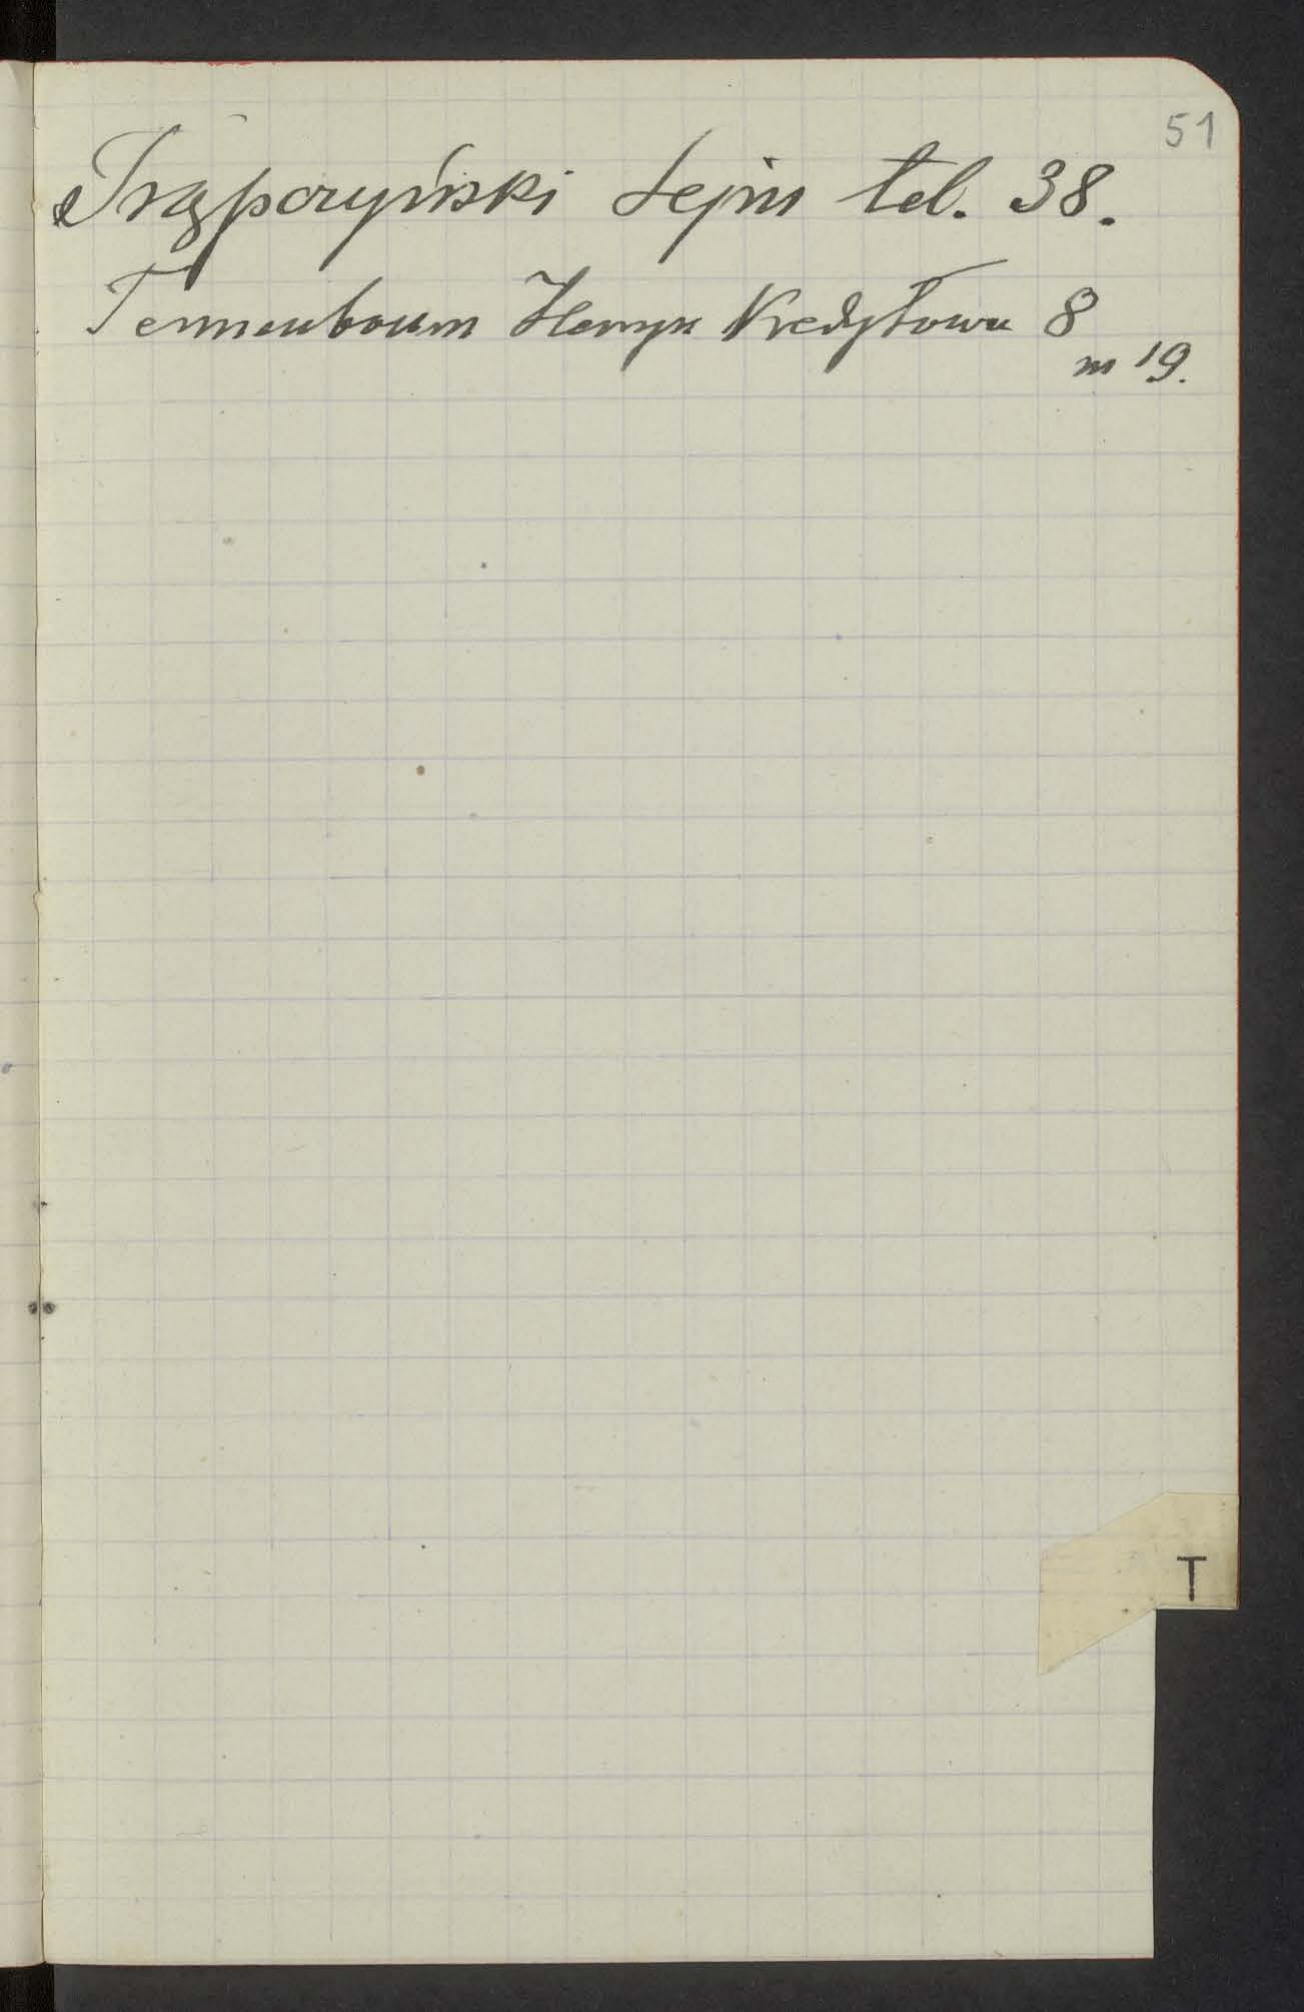 51
Trąmpczyński Sejm tel. 38.
Tennenbaum Henryk Kredytowa 8
m 19.
T